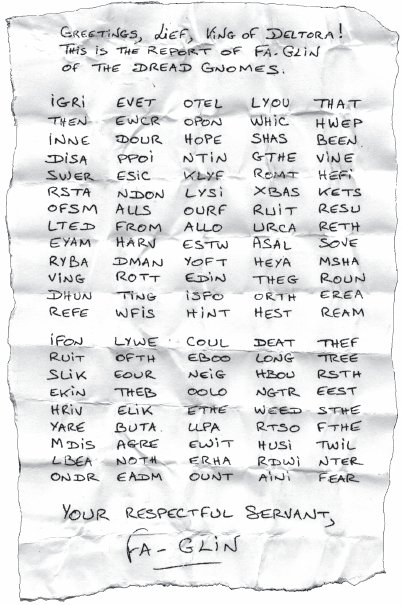 GREETINGS, LIEF, KING OF DELTORA!
THIS IS THE REPORT OF FA-GLIN
OF THE DREAD GNOMES.
IGRI EVET OTEL LYOU THAT
THEN EWCR OPON WHIC HWEP
INNE DOUR HOPE SHAS BEEN
DISA PPOI NTIN GTHE VINE
SWER ESIC KLYF ROMT HEFI
RSTA NDON LYSI XBAS KETS
OFSM ALLS OURF RUIT RESU
LTED FROM ALLO URCA RETH
EYAM HARV ESTW ASAL SOVE
RYBA DMAN YOFT HEYA MSHA
VING ROTT EDIN THEG ROUN
DHUN TING ISPO ORTH EREA
REFE WFIS HINT HEST REAM
IFON LYWE COUL DEAT THEF
RUIT OFTH EBOO LONG TREE
SLIK EOUR NEIG HBOU RSTH
EKIN THEB OOLO NGTR EEST
HRIV ELIK ETHE WEED STHE
YARE BUTA LLPA RTSO FTHE
MDIS AGRE EWIT HUSI TWIL
LBEA NOTH ERHA RDWI NTER
ONDR EADM OUNT AINI FEAR
YOUR RESPECTFUL SERVANT,
FA-GLIN